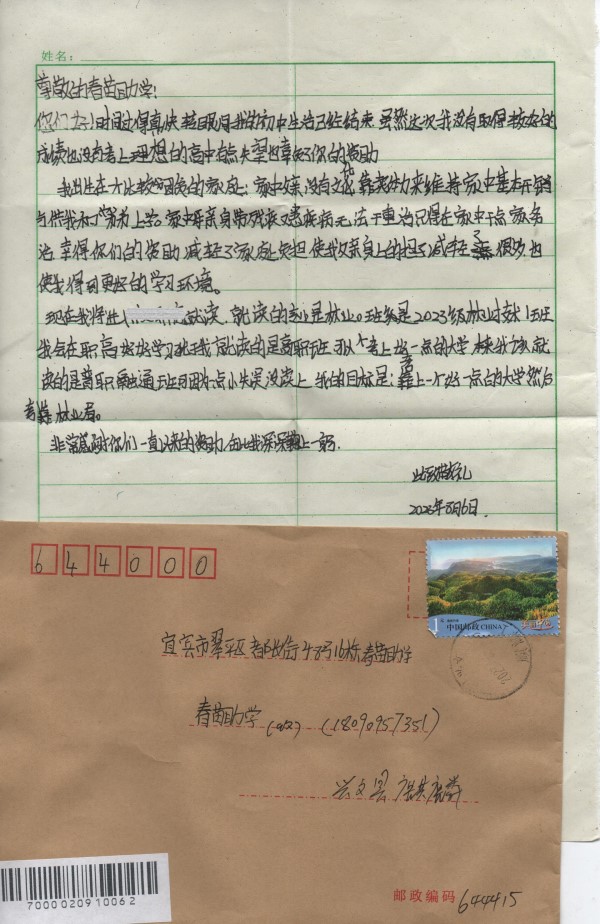 姓名：
尊敬的春苗助学：
你们好！时间过得真快转眼间我的初中生活已经结束 虽然这次我没有取得较好的
成绩也没有考上理想的高中有点失望也辜负了你的资助
我出生在一个比较困难的家庭：家中父亲没有文化 靠卖体力来维持家中基本开销
与供我和 上学。家中母亲身残 又患疾病无法干重活只得在家中干点家务
活 幸得你们的资助 减轻了家庭负担 使我父亲身上的担子减轻了很多也
使我得到更好的学习环境。
现在我将进 就读，就读的专业是林业。班级是2023级林业技术1班
我会在职高好好学习 我就读的是高职班可以考上好一点的大学 本来我该就
读的是普职融通班可因为一点小失误没读上 我的目标是：靠上一个好一点的大学然后
考 林业局。
非常感谢你们一直以来的资助 向此我深深鞠上一躬.
此致敬礼
2023年8月6日.
644000
中国邮政 CHINA
宜宾市翠屏区 街48号16栋春苗助学
春苗助学 (收) (18090957351)
兴文县
邮政编码 644415
7000020910062